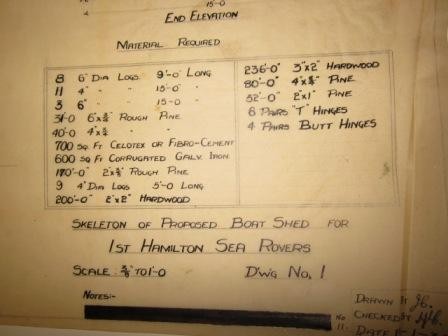 15-0
END ELEVATION
MATERIAL REQUIRED
8 6" DIA LOGS. 9'-0" LONG
11 4" " " 15'-0" "
3 6" " 15-0
31-0 6"x¾" ROUGH PINE
40-0 4"x¾" "
700 SQ FT CELOTEX OR FIBRO-CEMENT
600 SQ FT CORRUGATED GALV. IRON.
170'-0" 2"x¾" ROUGH PINE
9 4" DIA LOGS 5'-0 LONG
200'-0" 2"x2" HARDWOOD
236'-0" 3"x2" HARDWOOD
80'-0" PINE
52'-0" 2"x1" PINE
6 PAIRS "T" HINGES
4 PAIRS BUTT HINGES
SKELETON OF PROPOSED BOAT SHED FOR
1ST HAMILTON SEA ROVERS
SCALE ⅜" TO 1'-0
DWG NO. 1
NOTES:-
DRAWN
NO CHECKED BY
11- DATE